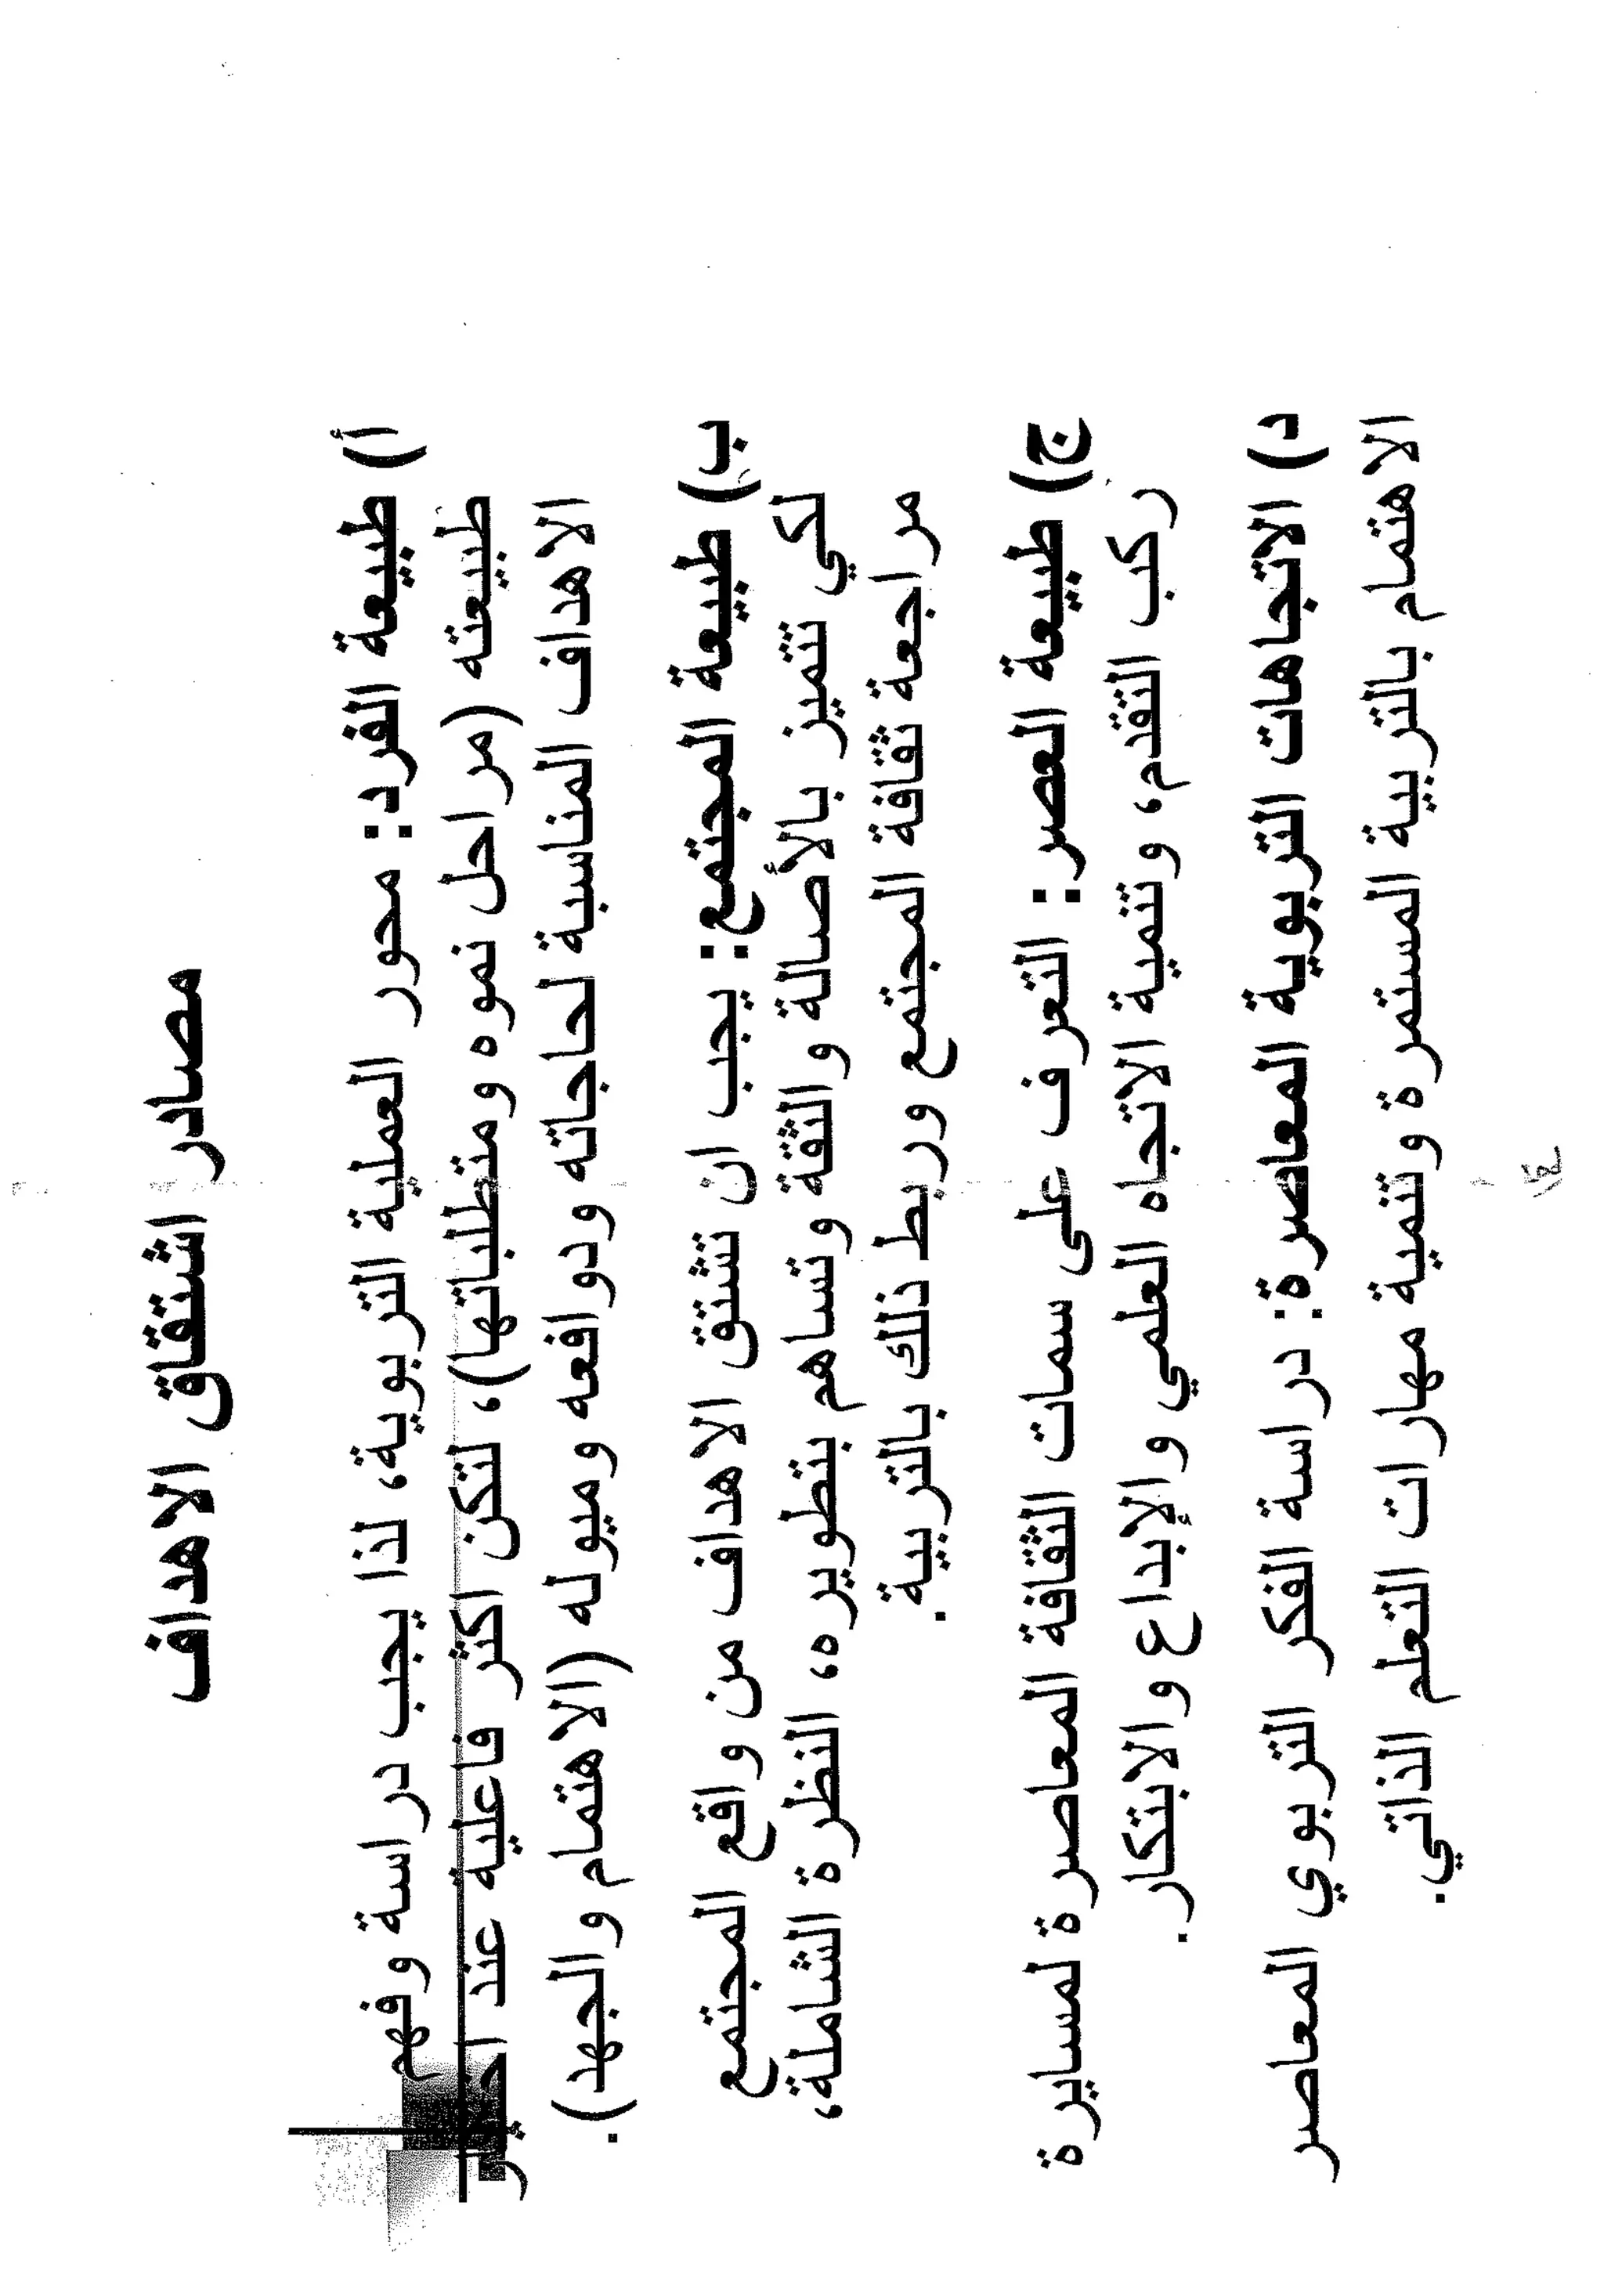 مصادر اشتقاق الاهداف
أ) طبيعة الفرد: محور العملية التربوية، لذا يجب دراسة وفهم
طبيعته (مراحل نموه ومتطلباتها)، لتكن اكثر فاعلية عند اختيار
الاهداف المناسبة لحاجاته ودوافعه وميوله (الاهتمام والجهد).
ب) طبيعة المجتمع: يجب ان تشتق الاهداف من واقع المجتمع
لكي تتميز بالأصالة والثقة وتساهم بتطويره، النظرة الشاملة،
مراجعة ثقافة المجتمع وربط ذلك بالتربية.
ج) طبيعة العصر: التعرف على سمات الثقافة المعاصرة لمسايرة
ركب التقدم، وتنمية الاتجاه العلمي والإبداع والابتكار.
د) الاتجاهات التربوية المعاصرة: دراسة الفكر التربوي المعاصر
الاهتمام بالتربية المستمرة وتنمية مهارات التعلم الذاتي.